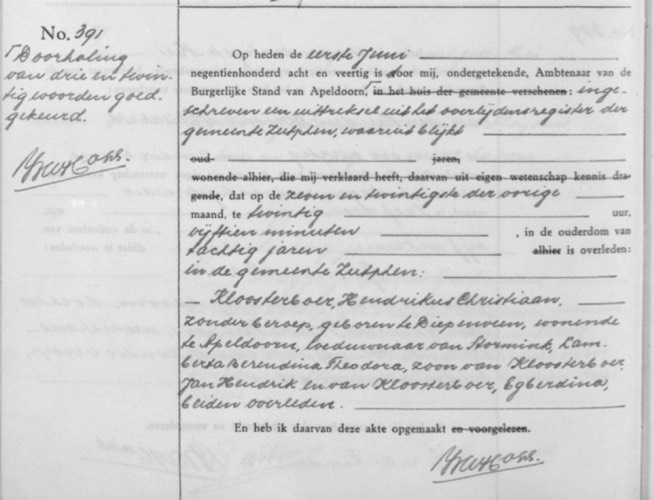 No. 391
Doorhaling
van drie en twin-
tig woorden goed-
gekeurd.
Op heden de eerste Juni
negentienhonderd acht en veertig is door mij, ondergetekende, Ambtenaar van de
Burgerlijke Stand van Apeldoorn, in het huis der gemeente verschenen: inge-
schreven een uittreksel uit het overlijdensregister der
gemeente Zutphen, waaruit blijkt
oud jaren,
wonende alhier, die mij verklaard heeft, daarvan uit eigen wetenschap kennis dra-
gende, dat op de zeven en twintigste der vorige
maand, te twintig uur,
vijftien minuten , in de ouderdom van
tachtig jaren alhier is overleden:
in de gemeente Zutphen:
— Kloosterboer, Hendrikus Christiaan,
zonder beroep, geboren te Diepenveen, wonende
te Apeldoorn, weduwnaar van Stormink, Lam-
berta Berendina Theodora, zoon van Kloosterboer,
Jan Hendrik en van Kloosterboer, Egberdina,
beiden overleden.
En heb ik daarvan deze akte opgemaakt en voorgelezen.